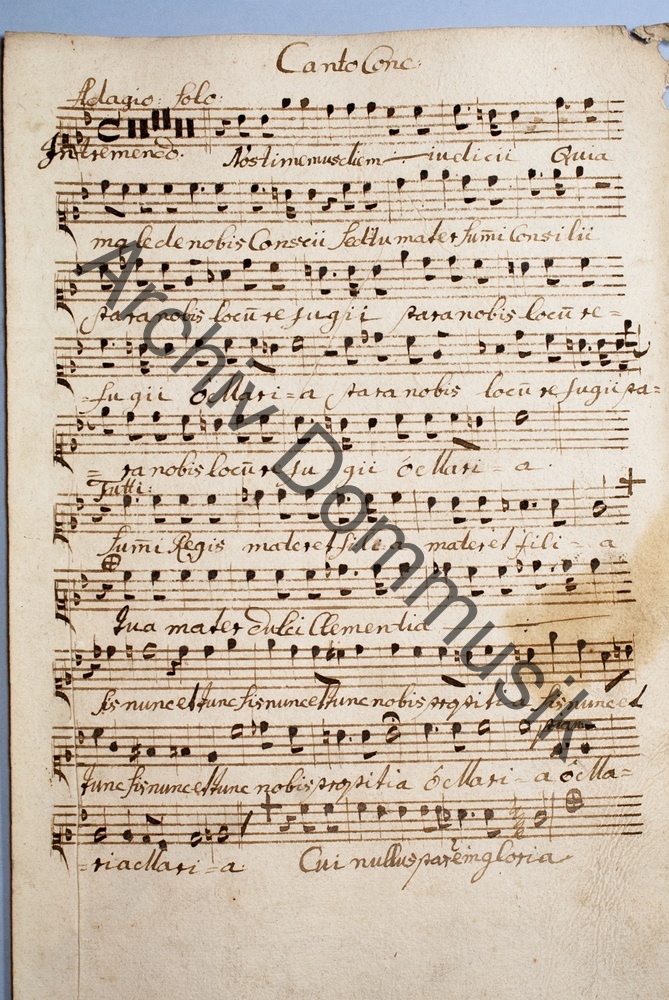 Canto Conc:
Adagio: Solo:
Intremendo. Nos timemus diem iudicii Quia
male de nobis Conscii Sed tu mater sum̃i Consilii
para nobis locũ refugii para nobis locũ re=
=fugii ô Mari=a para nobis locũ refugii pa=
=ra nobis locũ refugii ô Mari=a.
Tutti:
Sum̃i Regis mater et filia mater et fili=a
Tua mater dulci Clementia
sis nunc et tunc sis nunc et tunc nobis propitia sis nunc et
pian
tunc sis nunc et tunc nobis propitia ô Mari=a ô Ma=
=ria Mari=a. Cui nullus par in gloria
Archiv Dommusik